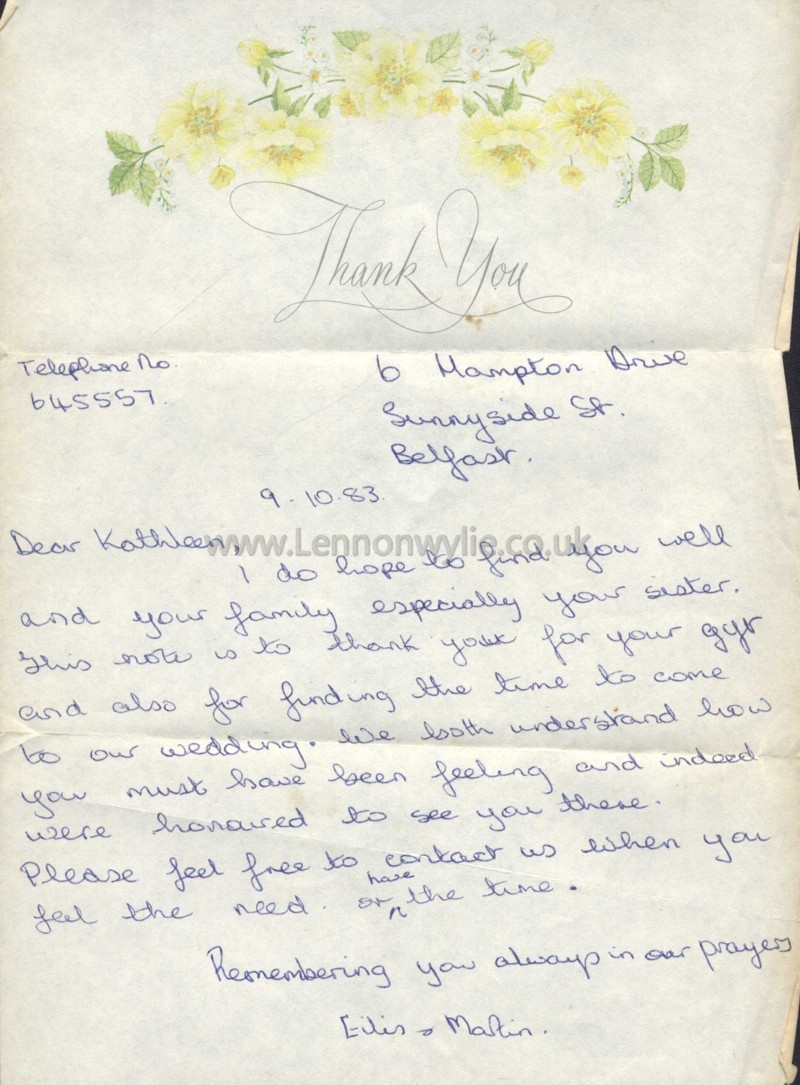 Thank You
Telephone No.
645557.
6 Hampton Drive
Sunnyside St.
Belfast.
9.10.83.
www.Lennonwylie.co.uk
Dear Kathleen,
I do hope to find you well
and your family especially your sister.
This note is to thank you for your gift
and also for finding the time to come
to our wedding. We both understand how
you must have been feeling and indeed
were honoured to see you there.
Please feel free to contact us when you
feel the need. or have the time.
Remembering you always in our prayers
Eilis & Martin.